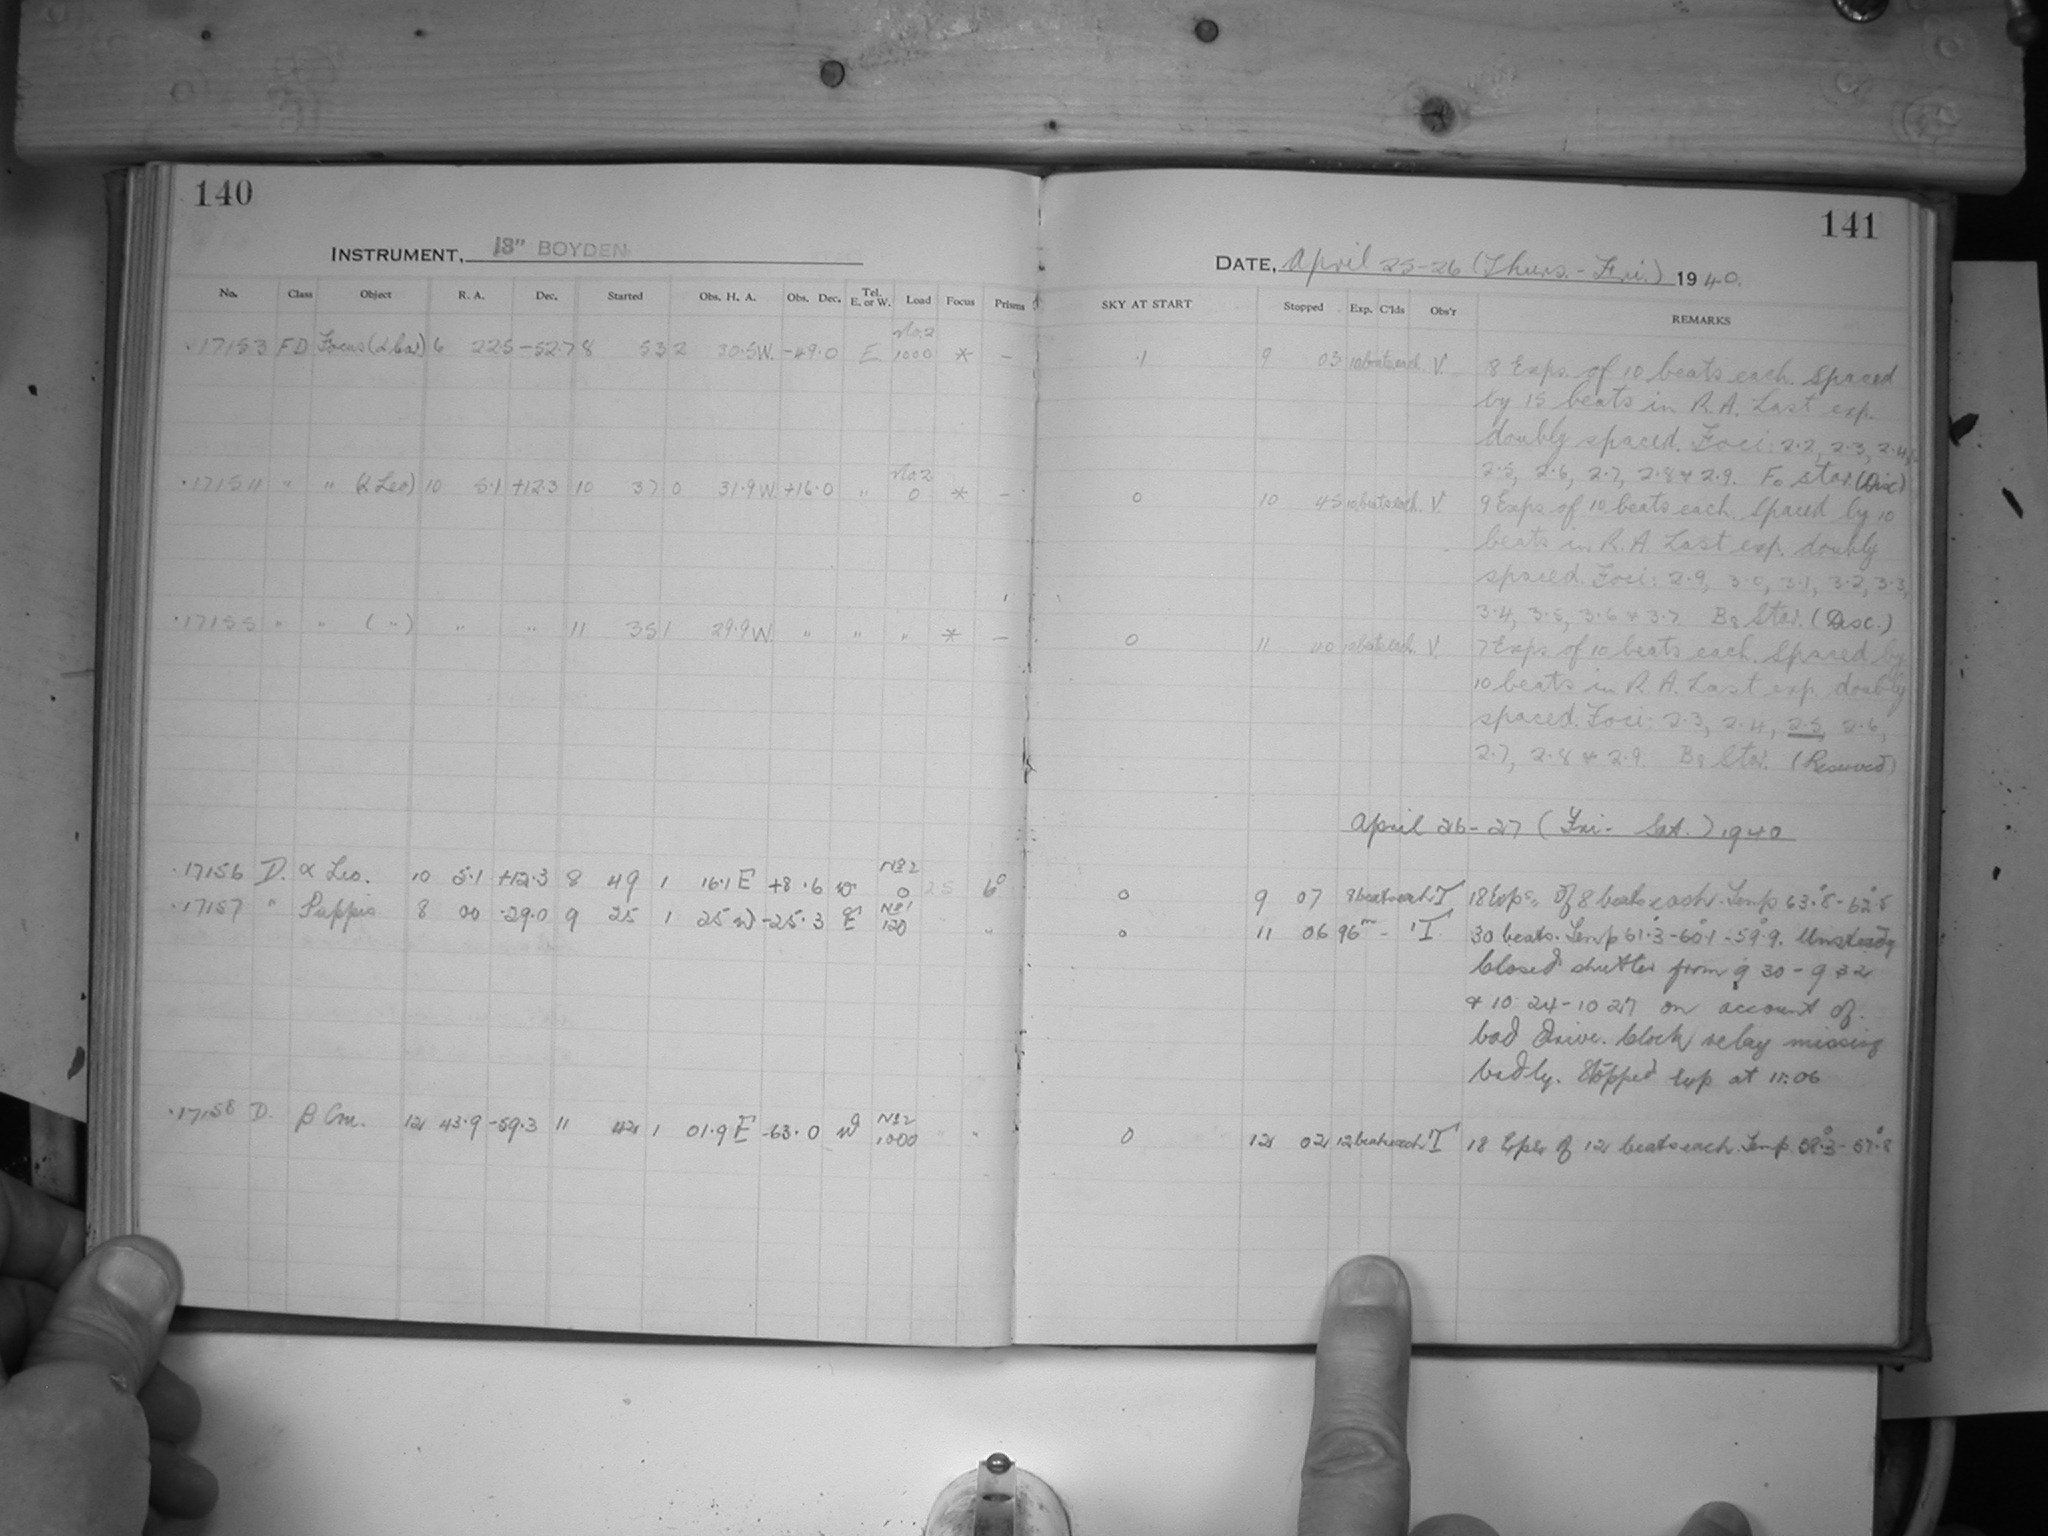 140
INSTRUMENT, 13" BOYDEN
No. Class Object R. A. Dec. Started Obs. H. A. Obs. Dec. Tel. E. or W. Load Focus Prisms
17153 FD Focus (α Car) 6 22.5 -52.7 8 53 2 30.5 W. -49.0 E No.2 1000 * -
17154 " " (α Leo) 10 5.1 +12.3 10 37 0 31.9 W +16.0 " No.2 0 * -
17155 " " ( " ) " " 11 35 1 29.9 W " " " * -
17156 D. α Leo. 10 5.1 +12.3 8 49 1 16.1 E +8.6 W No 2 0 2.5 6°
17157 " Puppis 8 00 -29.0 9 25 1 25 W -25.3 E No 1 120 "
17158 D. β Cru. 12 43.9 -59.3 11 42 1 01.9 E -63.0 W No 2 1000 " "
141
DATE, April 25-26 (Thurs.-Fri.) 1940.
SKY AT START Stopped Exp. C'lds Obs'r REMARKS
.1 9 03 10 beats each. V. 8 Exps. of 10 beats each. Spaced
by 15 beats in R.A. Last exp.
doubly spaced. Foci: 2.2, 2.3, 2.4,
2.5, 2.6, 2.7, 2.8 & 2.9. F0 star. (Disc)
0 10 45 10 beats each. V. 9 Exps of 10 beats each. Spaced by 10
beats in R.A. Last exp. doubly
spaced. Foci: 2.9, 3.0, 3.1, 3.2, 3.3,
3.4, 3.5, 3.6 & 3.7. B8 Star. (Disc.)
0 11 40 10 beats each. V. 7 Exps of 10 beats each. Spaced by
10 beats in R.A. Last exp. doubly
spaced. Foci: 2.3, 2.4, 2.5, 2.6,
2.7, 2.8 & 2.9. B8 Star. (Reserved)
April 26-27 (Fri- Sat.) 1940
0 9 07 8 beats each T 18 Exps. of 8 beats each. Temp 63.8-62.5
0 11 06 96m - T 30 beats. Temp 61.3-60.1-59.9. Unsteady
Closed shutter from 9 30-9 32
& 10 24-10 27 on account of
bad drive. Clock relay missing
badly. Stopped exp at 11.06
0 12 02 12 beats each T 18 Exps of 12 beats each. Temp 58.3-57.8